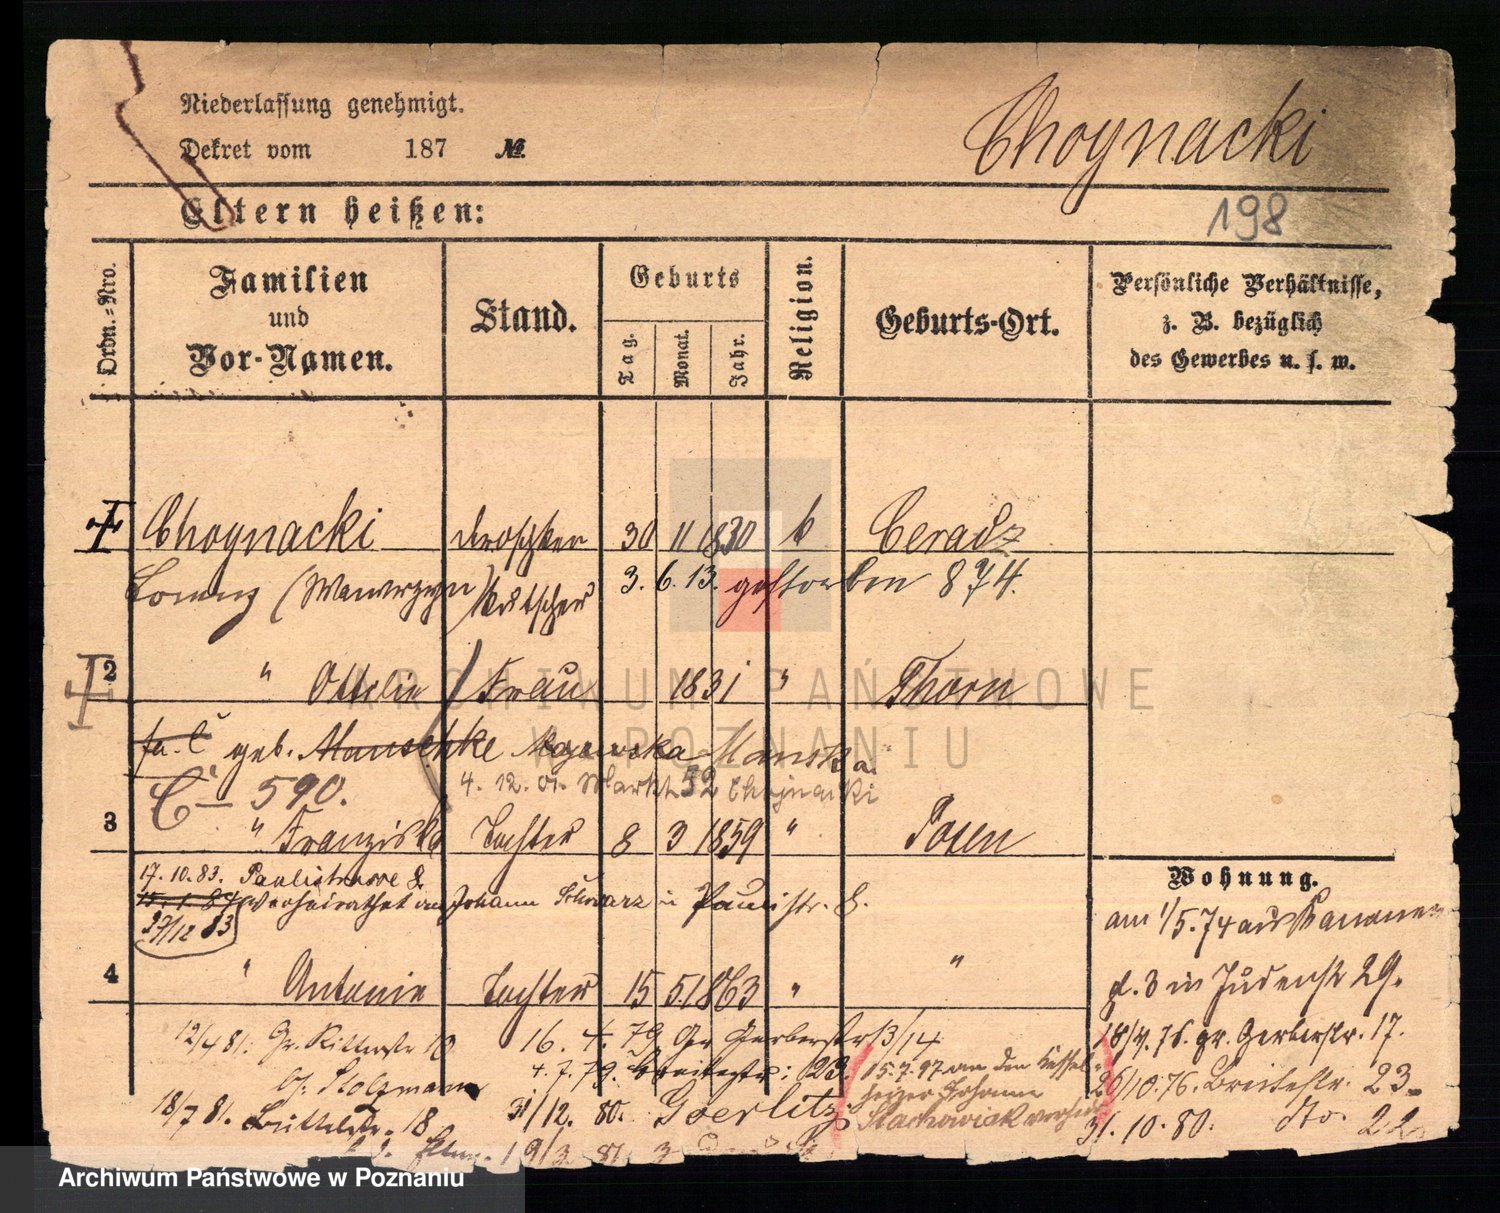 Niederlassung genehmigt.
Dekret vom 187 №.
Choynacki
198
Eltern heißen:
Ordn.-Nro.
Familien
und
Vor-Namen.
Stand.
Geburts
Tag.
Monat.
Jahr.
Religion.
Geburts-Ort.
Persönliche Verhältnisse,
z. B. bezüglich
des Gewerbes u. s. w.
Choynacki Droschken 30 11 1830 k Ceradz
Lorenz (Wawrzyn) Kutscher 3. 6. 13. gestorben 874.
2 " Ottilie Frau 1831 " Thorn
geb. Manschke Majewska Manska
C – 590. 4. 12. 01. Markt 52 Chojnacki
3 " Franziska Tochter 8 3 1859 " Posen
17. 10. 83. Paulistrasse 8
verheirathet an Johann Schwarz in Paulistr. 8.
27/12 83
4 " Antonie Tochter 15 5. 1863 " "
Wohnung.
am 1/5. 74 aus
pl. 3 in Judenstr 29.
18/4. 76. gr. Gerberstr. 17.
26/10. 76. Breitestr. 23.
31. 10. 80. dto. 22
12/4 81. Gr. Ritterstr 10
bei Stolzmann
18/7 81. Büttelstr. 18
16. 4. 79 Gr Gerberstr 3/14
4. 7. 79. Breitestr: 23.
31/12. 80. Goerlitz
15. 7. 97 an den Kessel-
heizer Johann
Stachowiak verh.
19/3. 81. 3
ARCHIWUM PAŃSTWOWE
W POZNANIU
Archiwum Państwowe w Poznaniu